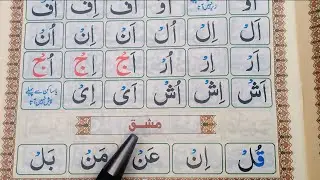 اَوْ اُوْ اَفْ اِفْ اُفْ
اَنْ اِنْ اُنْ
اَرْ اِرْ اُرْ اَجْ اِجْ اُجْ
اَشْ اِشْ اُشْ اَیْ اِیْ
مشق
قُلْ اِنْ عَنْ مَنْ بَلْ